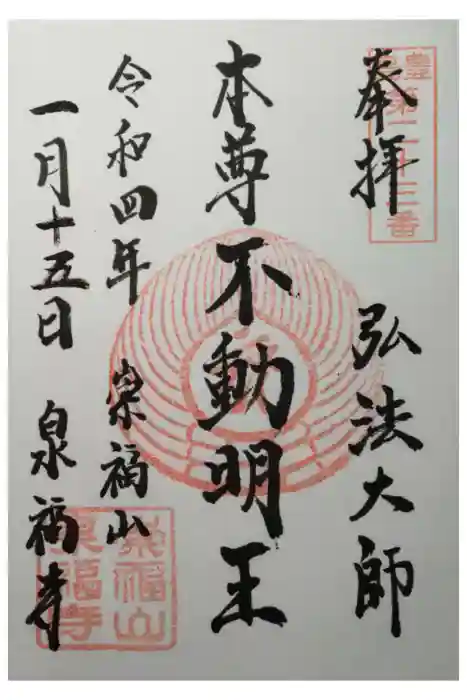 奉拝 弘法大師
第二十三番
本尊不動明王
令和四年 崇福山
一月十五日 泉福寺
崇福山
泉福寺